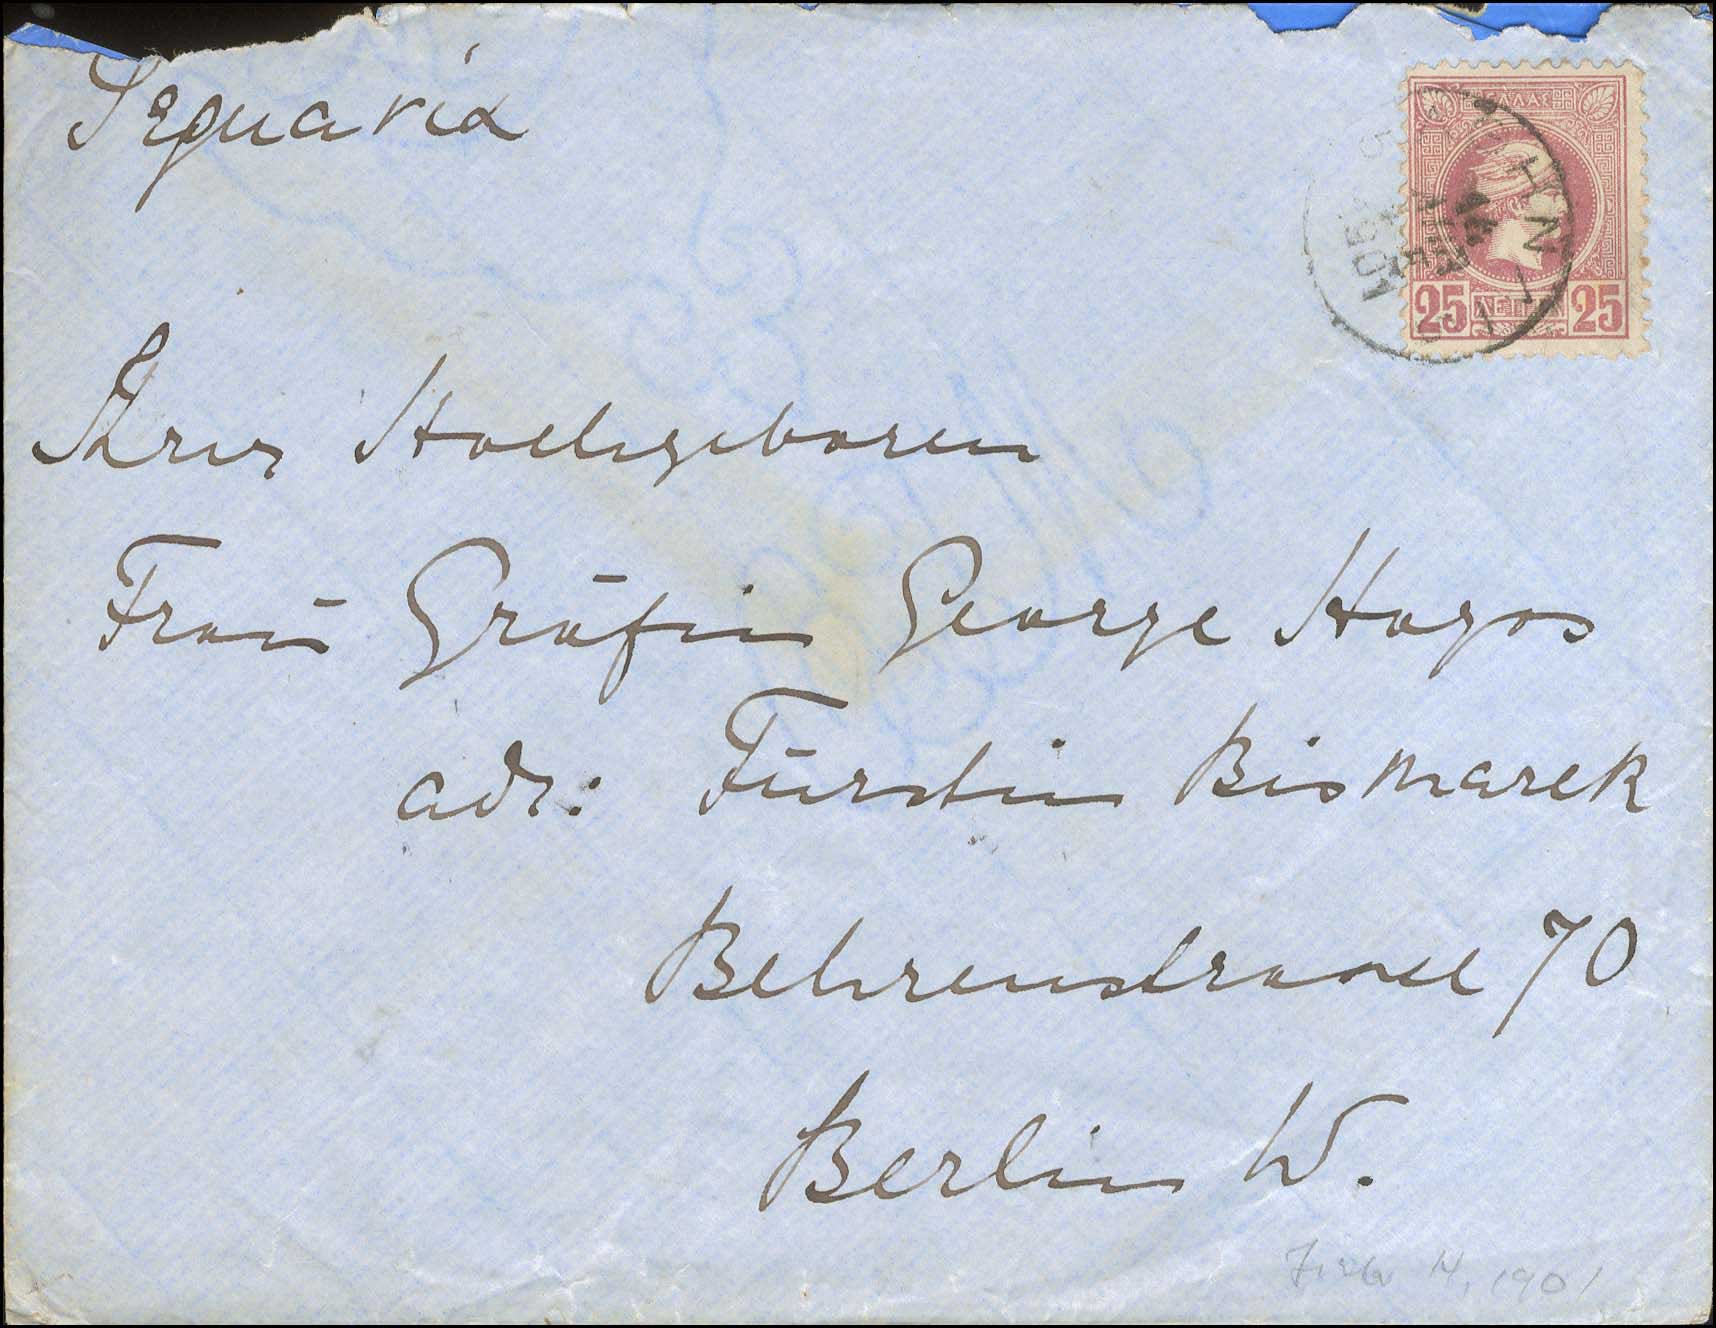 Γερμανία
ΕΛΛΑΣ
25 ΛΕΠΤΑ 25
Ihrer Hochgeboren
Frau Gräfin George Hoyos
adr: Fürstin Bismarck
Behrenstrasse 70
Berlin W.
14, 1901